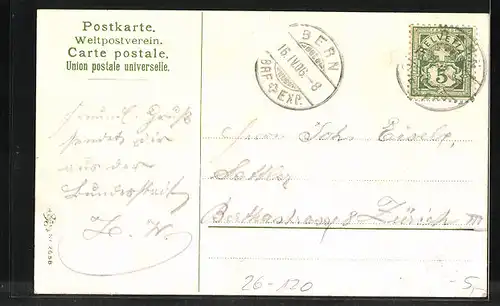 Postkarte.
Weltpostverein.
Carte postale.
Union postale universelle.
BERN
16.IV.06.-8
BRF EXP.
HELVETIA
5
Freundl. Gruß
sendet dir
aus der
Bundesstadt
Herrn Joh.
Sattler
Berthastrasse 8 Zürich III
26-120
-5,-